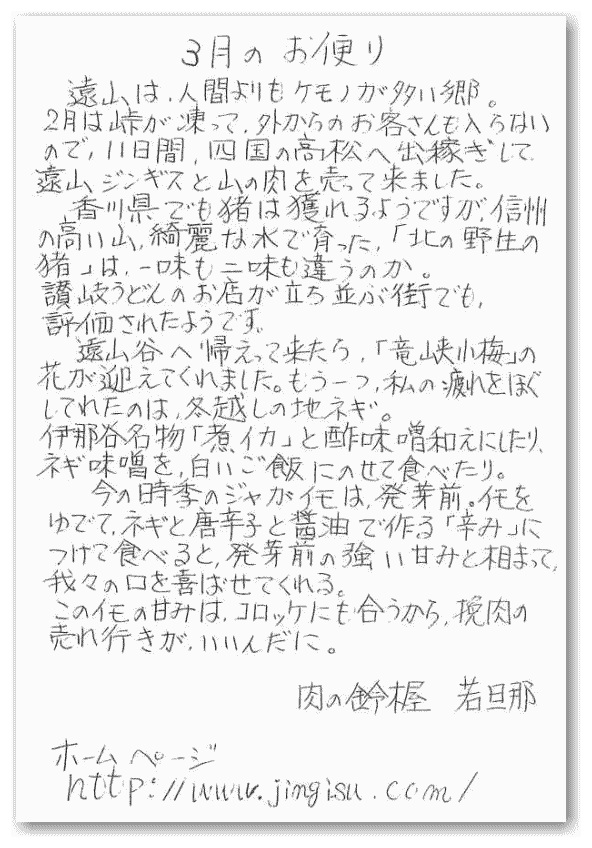 3月のお便り
遠山は、人間よりもケモノが多い郷。
2月は峠が凍って、外からのお客さんも入らない
ので、11日間、四国の高松へ出稼ぎして
遠山ジンギスと山の肉を売って来ました。
香川県でも猪は獲れるようですが、信州
の高い山、綺麗な水で育った、「北の野生の
猪」は、一味も二味も違うのか。
讃岐うどんのお店が立ち並ぶ街でも、
評価されたようです。
遠山谷へ帰えって来たら、「竜峡小梅」の
花が迎えてくれました。もう一つ、私の疲れをほぐ
してれたのは、冬越しの地ネギ。
伊那谷名物「煮イカ」と酢味噌和えにしたり、
ネギ味噌を、白いご飯にのせて食べたり。
今の時季のジャガイモは、発芽前。イモを
ゆでて、ネギと唐辛子と醤油で作る「辛み」に
つけて食べると、発芽前の強い甘みと相まって、
我々の口を喜ばせてくれる。
このイモの甘みは、コロッケにも合うから、挽肉の
売れ行きが、いいんだに。
肉の鈴木屋 若旦那
ホームページ
http://www.jingisu.com/